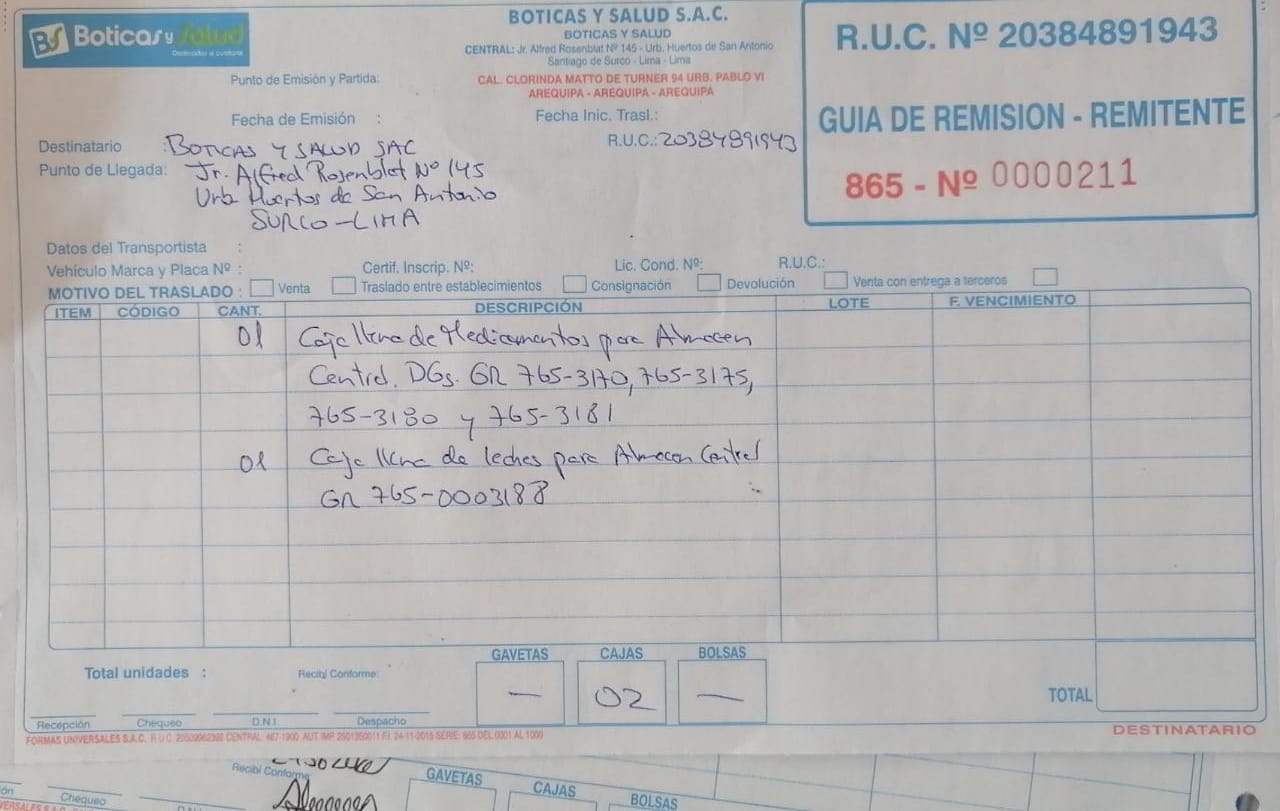 BS Boticas y Salud
Dedicados a cuidarte
BOTICAS Y SALUD S.A.C.
BOTICAS Y SALUD
CENTRAL: Jr. Alfred Rosenblat Nº 145 - Urb. Huertos de San Antonio
Santiago de Surco - Lima - Lima
CAL. CLORINDA MATTO DE TURNER 94 URB. PABLO VI
AREQUIPA - AREQUIPA - AREQUIPA
R.U.C. Nº 20384891943
GUIA DE REMISION - REMITENTE
865 - Nº 0000211
Punto de Emisión y Partida:
Fecha de Emisión :
Fecha Inic. Trasl.:
Destinatario : BOTICAS Y SALUD SAC
R.U.C.: 20384891943
Punto de Llegada: Jr. Alfred Rosenblat Nº 145
Urb Huertos de San Antonio
SURCO-LIMA
Datos del Transportista :
Vehículo Marca y Placa Nº :
Certif. Inscrip. Nº:
Lic. Cond. Nº:
R.U.C.:
MOTIVO DEL TRASLADO : Venta Traslado entre establecimientos Consignación Devolución Venta con entrega a terceros
ITEM CÓDIGO CANT. DESCRIPCIÓN LOTE F. VENCIMIENTO
01 Caja llena de Medicamentos para Almacen
Central. DGs. GR 765-3170, 765-3175,
765-3180 y 765-3181
01 Caja llena de leches para Almacen Central
GR 765-0003188
Total unidades :
Recibí Conforme:
GAVETAS CAJAS BOLSAS
— 02 —
TOTAL
Recepción Chequeo D.N.I. Despacho
FORMAS UNIVERSALES S.A.C. R.U.C. CENTRAL: 467-1900 F.I. 24-11-2015 SERIE: 865 DEL 0001 AL 1000
DESTINATARIO
Recibí Conforme:
GAVETAS CAJAS BOLSAS
Chequeo